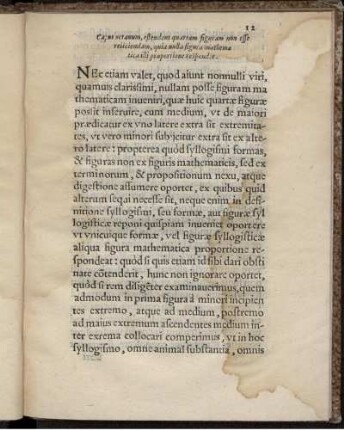 12
Caput octauum, ostendens quartam figuram non esse
reiiciendam, quia nulla figura mathema
tica illi proportione respondet.
NEc etiam valet, quod aiunt nonnulli viri,
quamuis clarissimi, nullam posse figuram ma
thematicam inueniri, quæ huic quartæ figuræ
possit inseruire, cum medium, vt de maiori
prædicatur ex vno latere extra sit extremita-
tes, vt vero minori subijcitur extra sit ex alte-
ro latere: propterea quòd syllogismi formas,
& figuras non ex figuris mathematicis, sed ex
terminorum, & propositionum nexu, atque
digestione assumere oportet, ex quibus quid
alterum sequi necesse sit, neque enim in defi-
nitione syllogismi, seu formæ, aut figuræ syl
logisticæ reponi quispiam inueniet oportere
vt vnicuique formæ, vel figuræ syllogisticæ
aliqua figura mathematica proportione re-
spondeat: quòd si quis etiam id sibi dari obsti
nate cōtenderit, hunc non ignorare oportet,
quòd si rem diligēter examinauerimus, quem
admodum in prima figura à minori incipien
tes extremo, atque ad medium, postremo
ad maius extremum ascendentes medium in-
ter exrema collocari comperimus, vt in hoc
syllogismo, omne animal substantia, omnis